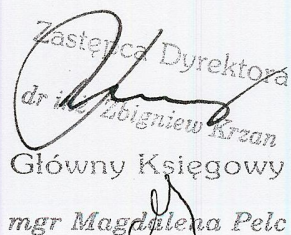 Zastępca Dyrektora
dr inż. Zbigniew Krzan
Główny Księgowy
mgr Magdalena Pelc